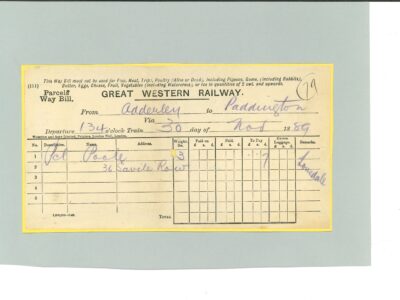 This Way Bill must not be used for Fish, Meat, Tripe, Poultry (Alive or Dead), including Pigeons, Game, (including Rabbits),
Butter, Eggs, Cheese, Fruit, Vegetables (including Watercress), or Ice in quantities of 2 cwt. and upwards.
(111)
Parcels Way Bill,
GREAT WESTERN RAILWAY.
79
From Adderley to Paddington
Via
Departure 134 o'clock Train 30 day of Nov 1889
No. Description. Name Address. Weight lbs. Paid on s. d. Paid s. d. To Pay s. d. Excess Luggage s. d. Remarks.
1 Pcl Poole 3 7 Lonsdale
2 36 Savile Row
3
4
5
6
Total